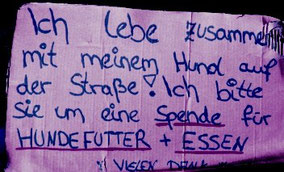 Ich lebe zusammen
mit meinem Hund auf
der Straße! Ich bitte
Sie um eine Spende für
HUNDEFUTTER + ESSEN
VIELEN DANK